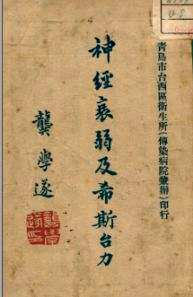 青島市台西區衛生所(傳染病院兼辦)印行
神經衰弱及希斯台力
龔學遂